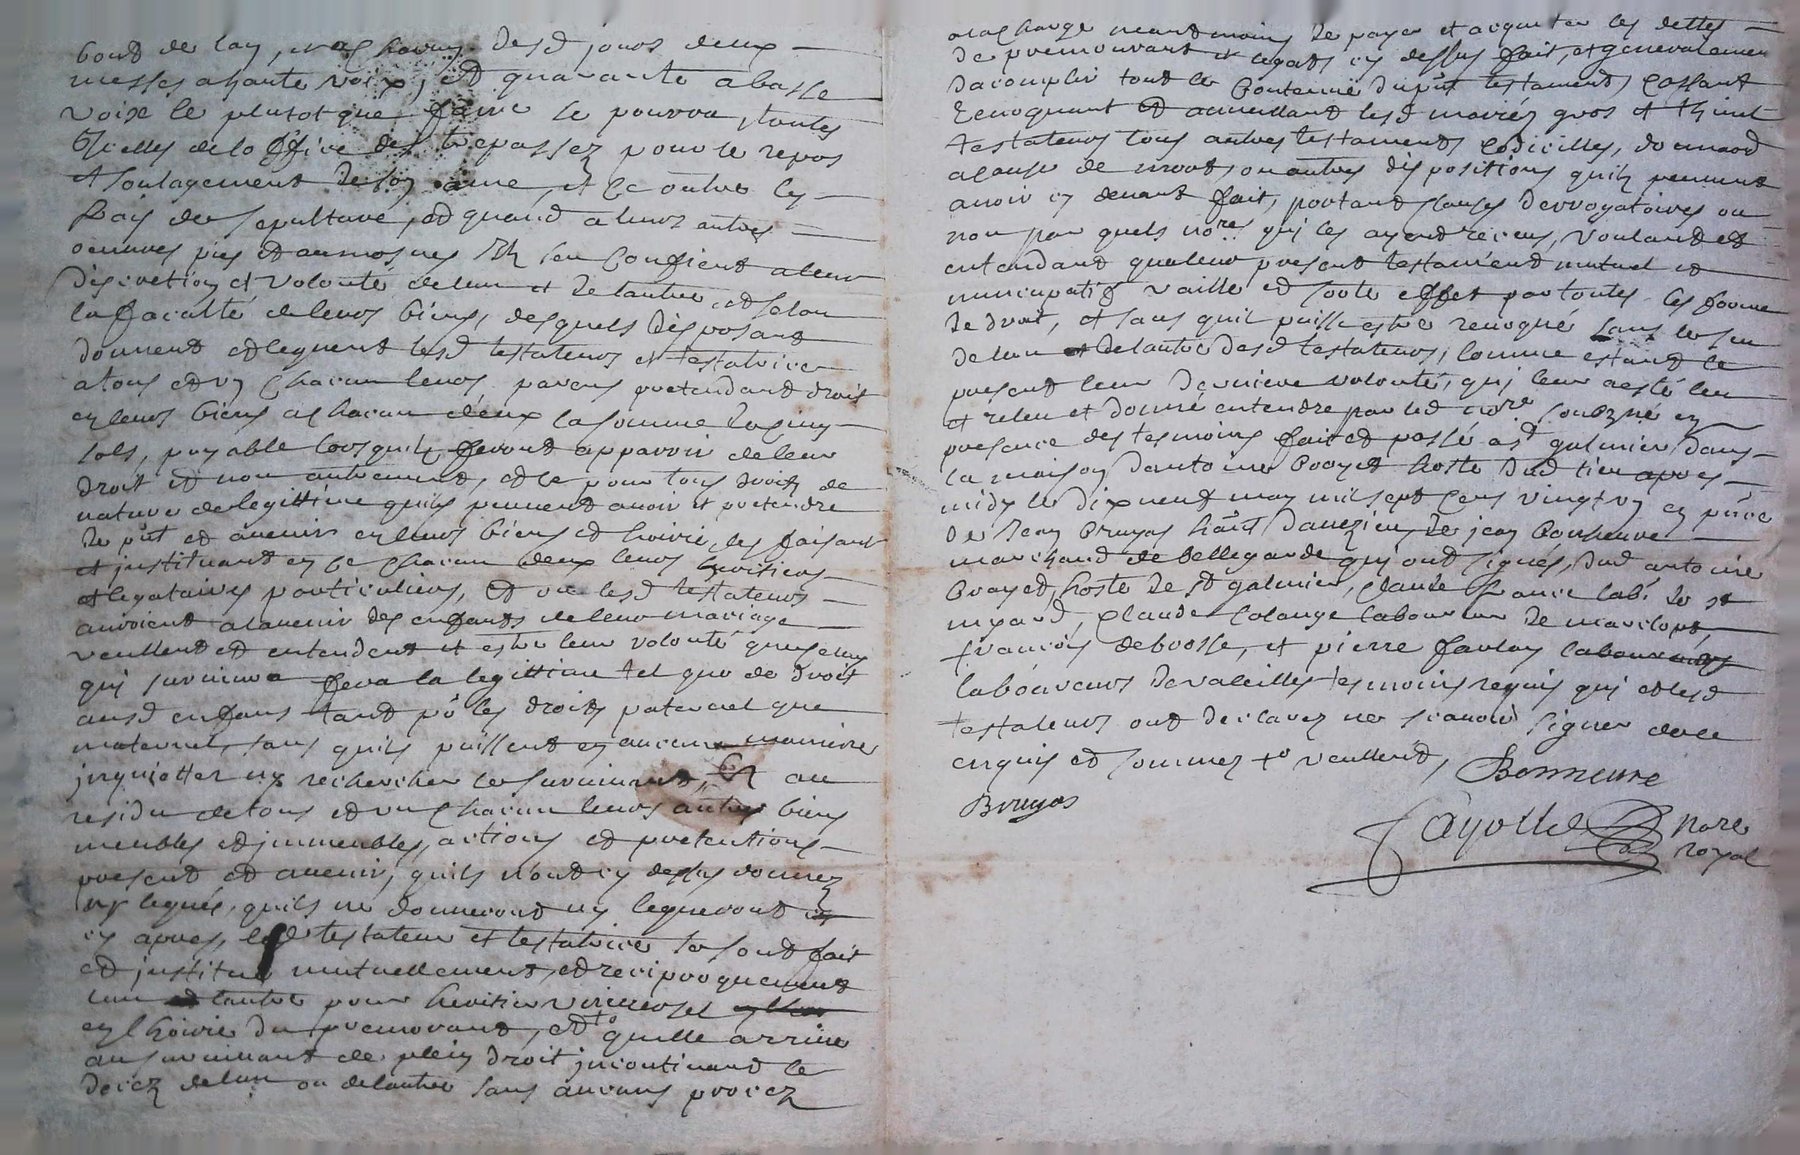 bout de l'an, et a chacun desd jours deux
messes a haute voix, et quarante a basse
voix le plutot que faire se pourra, toutes
Icelles de loffice des trepassez pour le repos
et soulagement de son ame, et ce outre les
frais de sepulture, et quand a leurs autres
oeuvres pies et aumosnes Ils sen confient a leur
discretion et volonté de lun et de lautre et selon
la faculté de leurs biens, desquels disposant
donnent et leguent lesd testateurs et testatrice
a tous et un chacun leurs parens pretendant droit
en leurs biens a chacun deux la somme de cinq
sols, payable lors quils feront apparoir de leur
droit et non autrement, et ce pour tous droits de
nature de legittime quils peuvent avoir et pretendre
de pñt et avenir en leurs biens et hoirie, les faisant
et instituant en ce chacun deux leurs heritiers
et legataires particuliers, et ou lesd testateurs
auroient a lavenir des enfants de leur mariage
veullent et entendent et estre leur volonté que celuy
qui survivra fera la legittime tel que de droit
ausd enfans tant pr les droits paternel que
maternel, sans quils puissent en aucune maniere
inquietter ny rechercher le survivant, Et au
residu de tous et un chacun leurs autres biens
meubles et immeubles, actions et pretentions
present et avenir, quils nont cy dessus donnez
ny legués, quils ne donneront ny legueront
cy apres, lesd testateur et testatrice se sont fait
et institué mutuellement, et reciproquement
lun et lautre pour heritier universel
en lhoirie du premourant, et quelle arrive
au survivant de plein droit incontinant le
decez de lun ou de lautre sans aucuns procez
a la charge neantmoins de payer et acquitter les dettes
du premourant et legats cy dessus fait, et generalement
dacomplir tout le contenue du pñt testament, cassant
Revoquant et annullant lesd mariez gros et
testateurs tous autres testaments codicilles, donnaōn
a cause de mort, ou autres dispositions quils peuvent
avoir cy devant fait, portant clauses derrogatoires ou
non par quels nores qui les ayent receus, voulant et
entendant que leur present testament mutuel et
nuncupatif vaille et sorte effet par toutes les forme
de droit, et sans quil puisse estre revoqué sans le sceu
de lun et de lautre desd testateurs, comme estant le
present leur derniere volonté, qui leur a esté leu
et releu et donné entendre par led nore soubzné en
presence des tesmoins fait et passé a st galmier dans
la maison dantoine Boayet hoste dud lieu apres
midy le dix neuf may mil sept cens vingt un en pñce
de Jean Bruyas hant daveizieu de jean Bonneure
marchand de Bellegarde qui ont signés, dud antoine
Boayet, hoste de st galmier, Claude france labr de st
medard, Claude Colange laboureur de marclopt,
francois debrosse, et pierre faulay
laboureurs de valeilles tesmoins requis qui et lesd
testateurs ont declarez ne scavoir signer de ce
enquis et sommez ts veullent,
Bonneure
Bruyas
fayolle Nore
royal